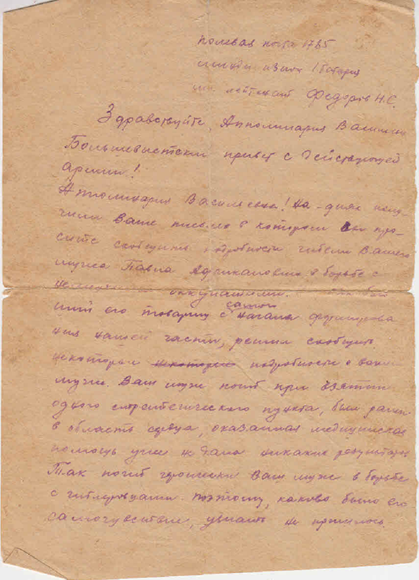 полевая почта 1765
1 батарея
лейтенант Федоров Н.С.
Здравствуйте, Апполинария Васильевна
Большевистский привет с Действующей
армии!
Апполинария Васильевна! На-днях полу-
чили Ваше письмо в котором Вы про-
сите сообщить подробности гибели Вашего
мужа Павла в борьбе с
оккупантами.
его товарищ с самого начала формирова
ния нашей части, решил сообщить
некоторые некоторые подробности о Вашем
муже. Ваш муж погиб при взятии
одного стратегического пункта, был ранен
в область сердца, оказанная медицинская
помощь уже не дала никаких результатов
Так погиб героически Ваш муж в борьбе
с гитлеровцами. Поэтому, каково было его
самочувствие, узнать не пришлось.